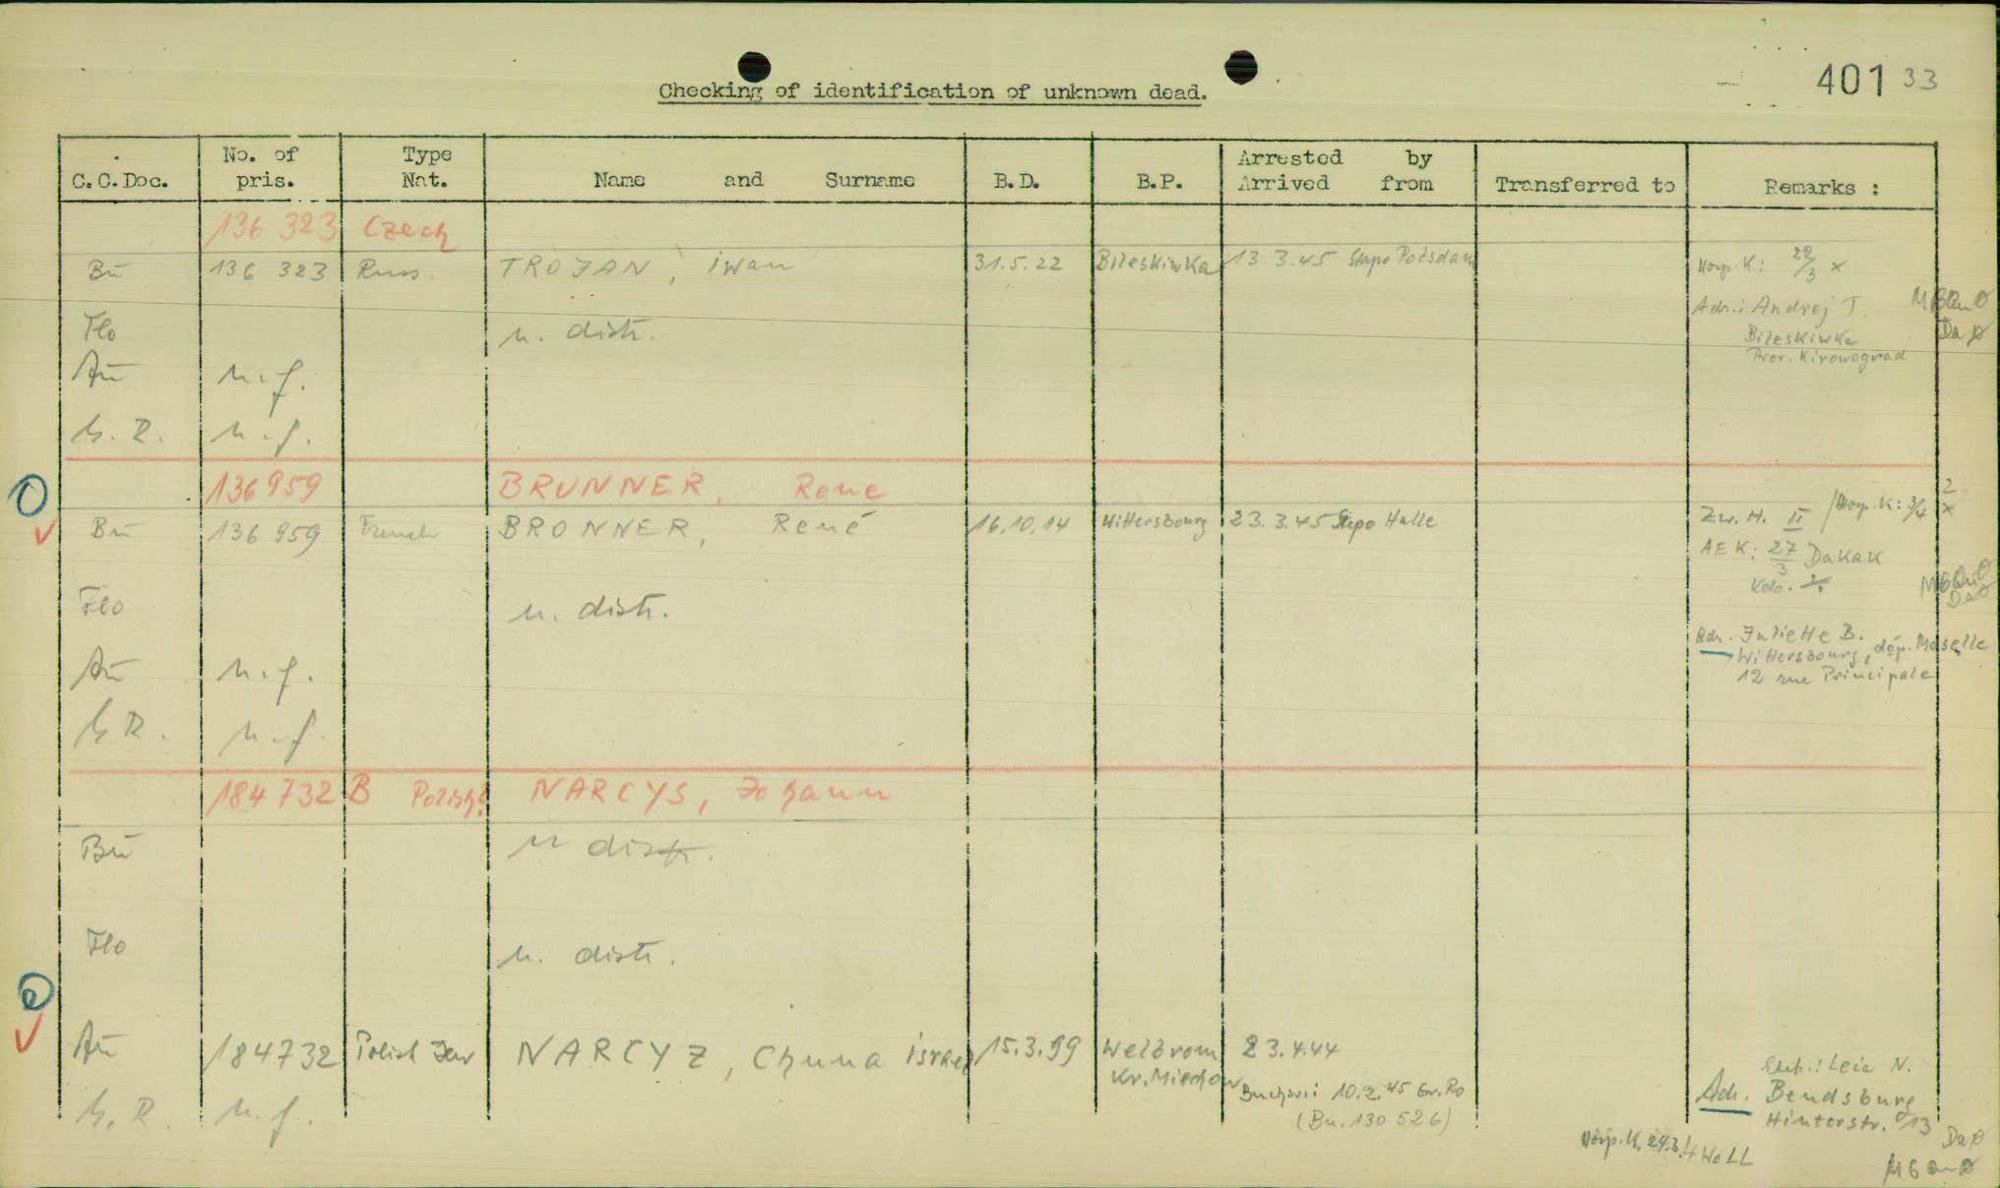 401 33
Checking of identification of unknown dead.
C.C.Doc. No. of pris. Type Nat. Name and Surname B.D. B.P. Arrested by Arrived from Transferred to Remarks :
136 323 Czech
Bu 136 323 Russ. TROJAN, Iwan 31.5.22 Bileskiwka 13 3.45 Stapo Potsdam Horp.K: 22/3 x
Adr.: Andrej T.
Bileskiwka
Prov. Kirowograd
Flo n. distr.
Au n.f.
G.R. n.f.
136959 BRUNNER, Rene
Bu 136 959 French BRONNER, René 16.10.14 Wittersbourg 23.3.45 Stapo Halle Zw.H. II / Horp.K: 3/4 x
AEK: 27/3 DaKaK
Flo n. distr.
Adr. Juliette B.
Wittersbourg, dép. Moselle
12 rue Principale
Au n.f.
G.R. n.f.
184732 B Polish? NARCYS, Johann
Bu n distr.
Flo n. distr.
Au 184732 Polish Jew NARCYZ, Chuna Israel 15.3.99 Welbrom Kr.Miechow 23.4.44
Buchw: 10.2.45 Gr.Ro
(Bu.130 526)
Leia N.
Adr. Bendsburg
Hinterstr. 13
G.R. n.f.